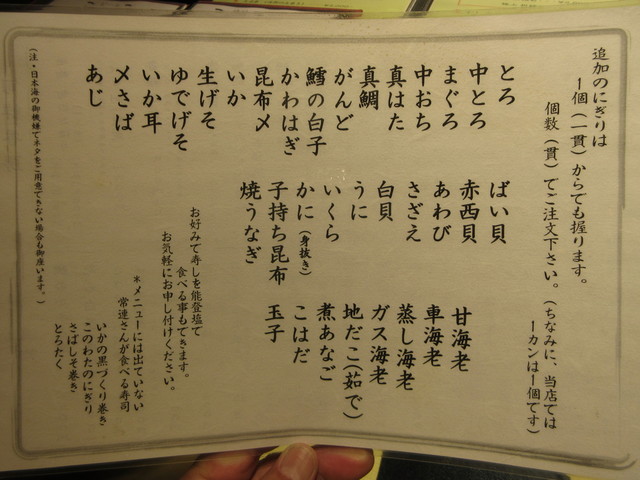 追加のにぎりは
一個(一貫)からでも握ります。
個数(貫)でご注文下さい。(ちなみに、当店では
一カンは一個です)
とろ
中とろ
まぐろ
中おち
真はた
真鯛
がんど
鱈の白子
かわはぎ
昆布〆
いか
生げそ
ゆでげそ
いか耳
〆さば
あじ
ばい貝
赤西貝
あわび
さざえ
白貝
うに
いくら
かに(身抜き)
子持ち昆布
焼うなぎ
甘海老
車海老
蒸し海老
ガス海老
地だこ(茹で)
煮あなご
こはだ
玉子
お好みで寿しを能登塩で
食べる事もできます。
お気軽にお申し付けください。
*メニューには出ていない
常連さんが食べる寿司
いかの黒づくり巻き
このわたのにぎり
さばしそ巻き
とろたく
(注・日本海の御機嫌でネタをご用意できない場合も御座います。)